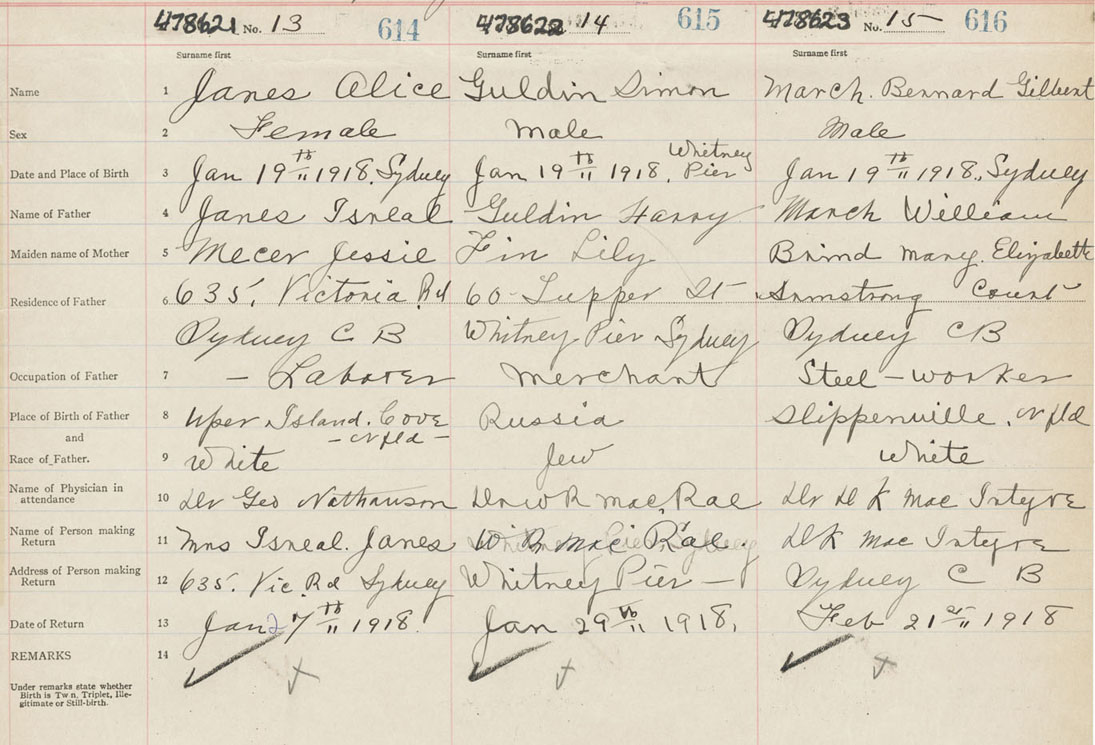 478621 No. 13 614 478622 14 615 478623 No. 15 616
Surname first Surname first Surname first
Name 1 Janes Alice Guldin Simon March. Bernard Gilbert
Sex 2 Female Male Male
Date and Place of Birth 3 Jan 19th 1918. Sydney Jan 19th 1918. Whitney Pier Jan 19th 1918., Sydney
Name of Father 4 Janes Isreal Guldin Harry March William
Maiden name of Mother 5 Mecer Jessie Fin Lily Brind Mary. Elizabeth
Residence of Father 6 635. Victoria Rd 60 Tupper St Armstrong Court
Sydney C B Whitney Pier Sydney Sydney C B
Occupation of Father 7 — Laborer Merchant Steel – worker
Place of Birth of Father 8 Uper Island. Cove Russia Slippenville. Nfld
and – Nfld –
Race of Father. 9 White Jew White
Name of Physician in
attendance 10 Dr Geo Nathanson Dr W R Mac, Rae Dr D K Mac Intyre
Name of Person making
Return 11 Mrs Isreal. Janes W R Mac Rae. D K Mac Intyre
Address of Person making
Return 12 635. Vic. Rd Sydney Whitney Pier — Sydney C B
Date of Return 13 Jan 27th 1918. Jan 29th 1918. Feb 21st 1918
REMARKS 14
Under remarks state whether
Birth is Tw n, Triplet, Ille-
gitimate or Still-birth.